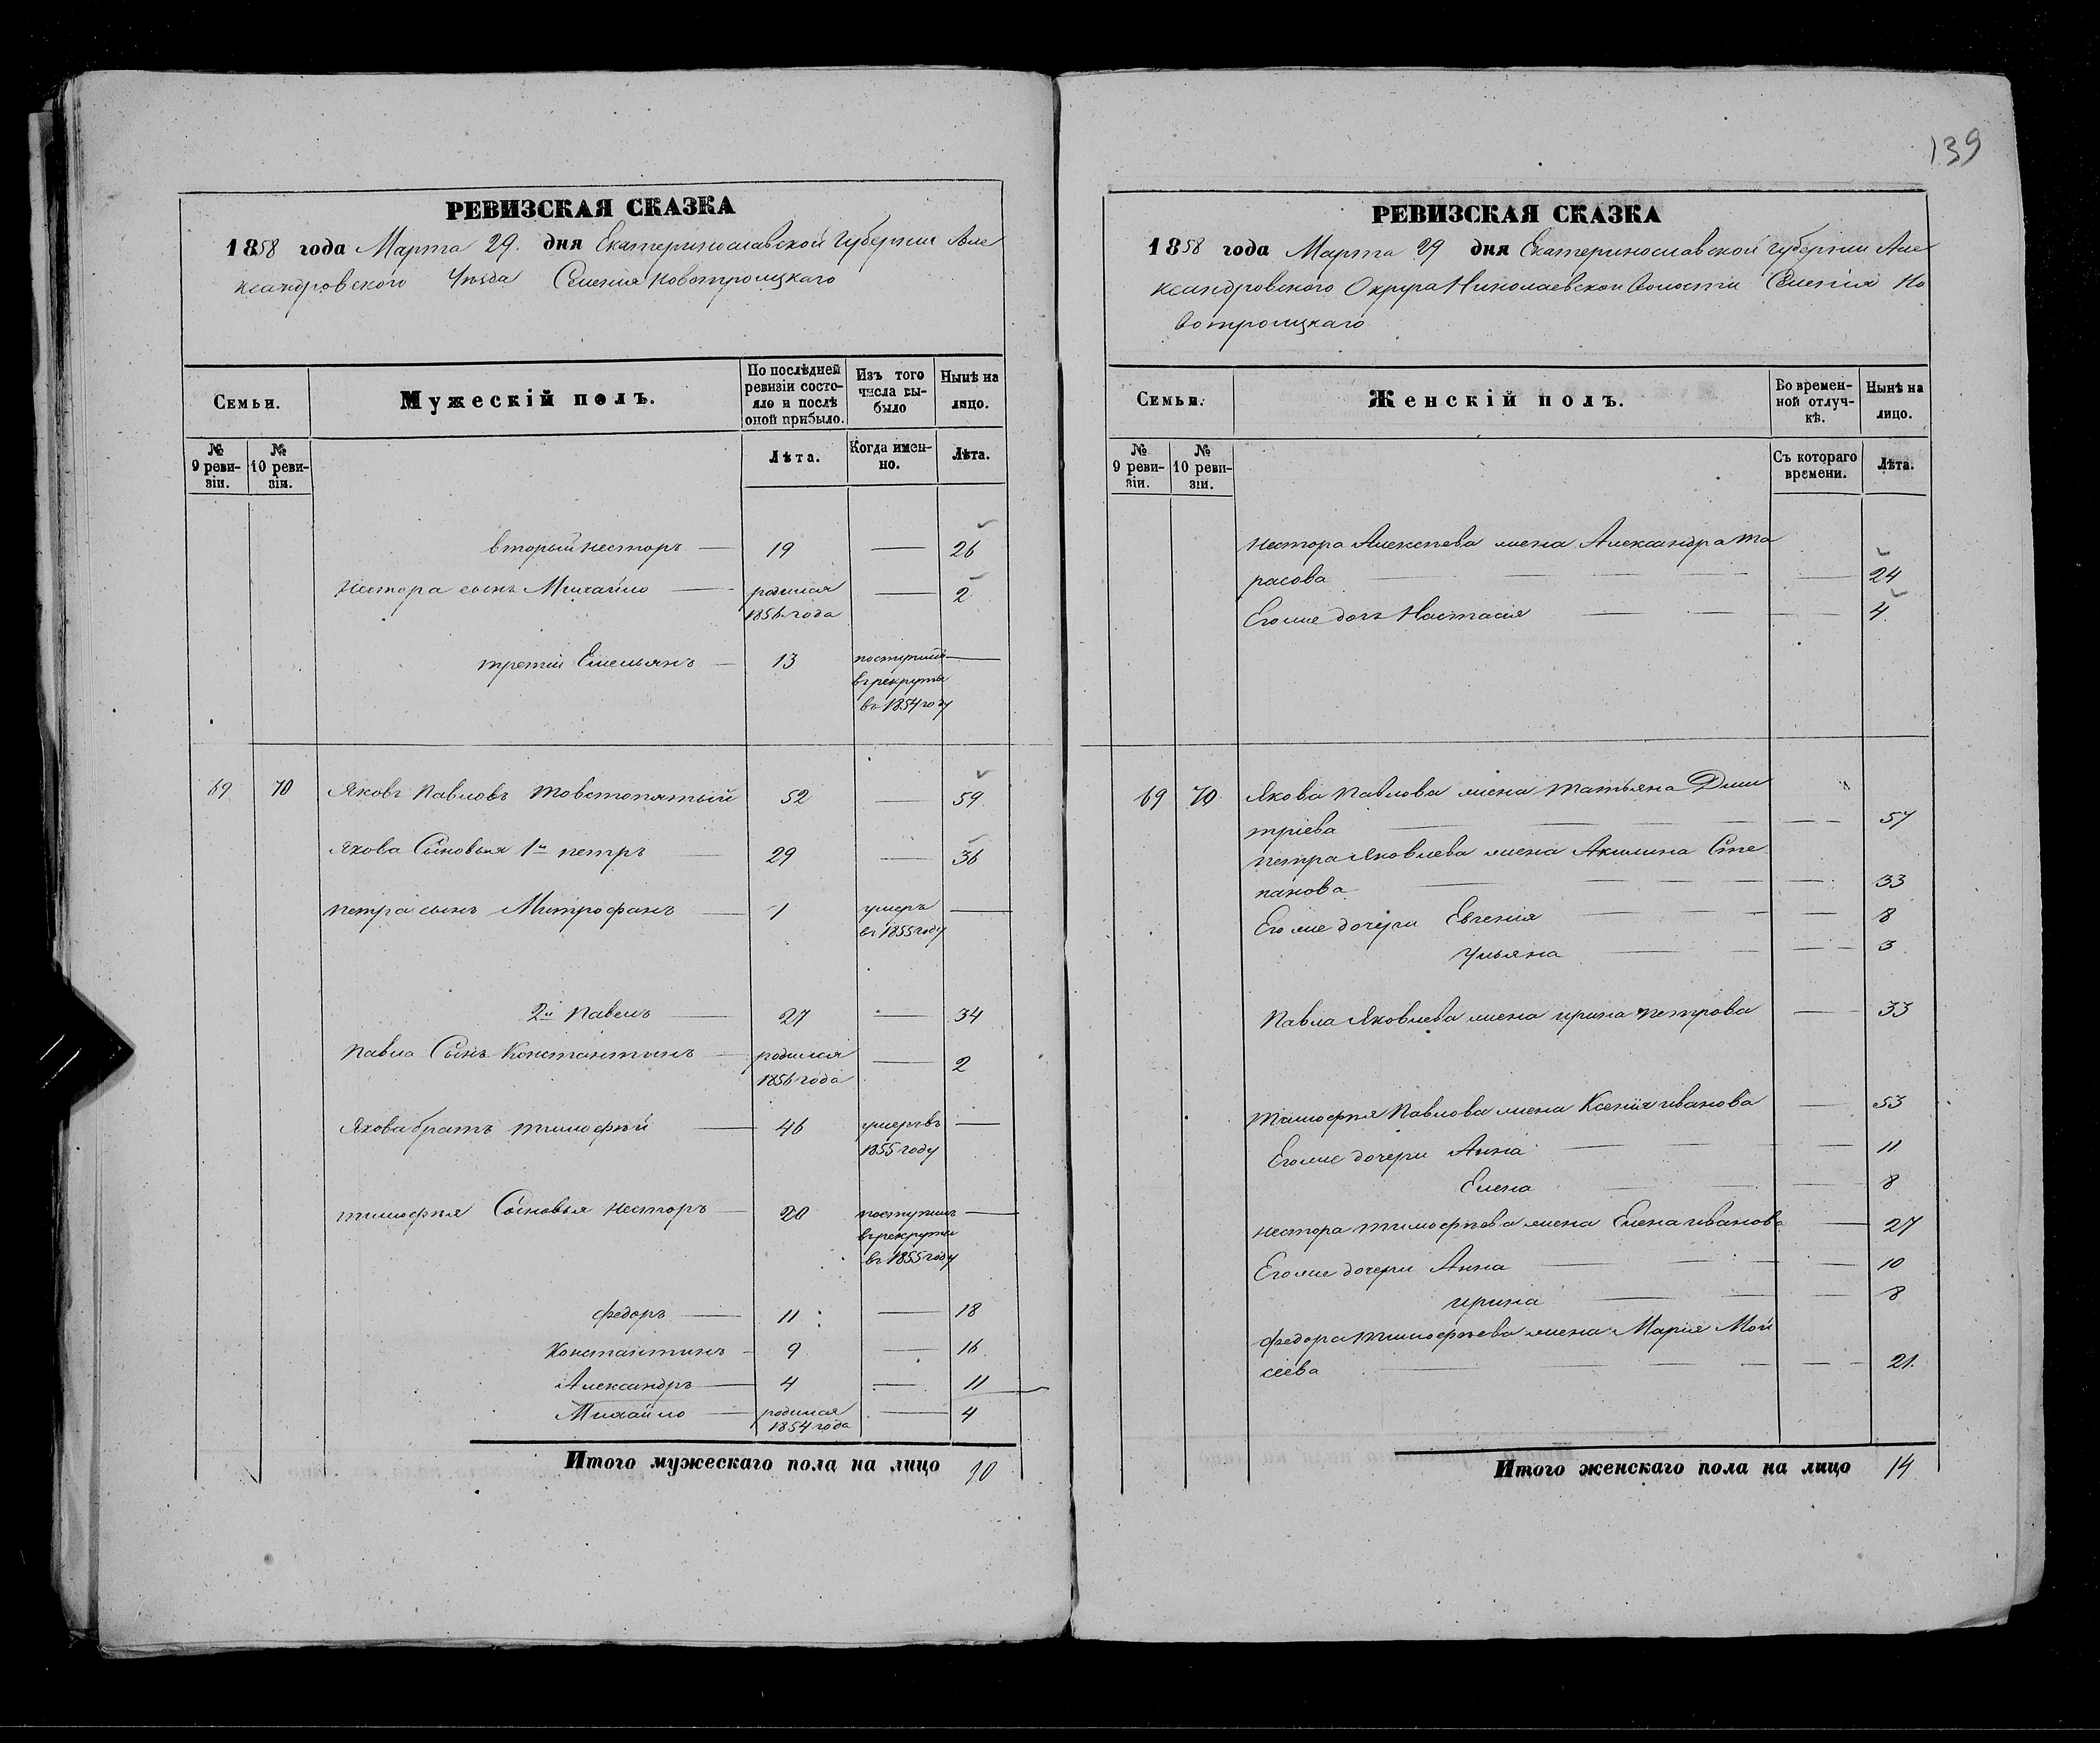 РЕВИЗСКАЯ СКАЗКА
1858 года Марта 29. дня Екатеринославской Губернии Але
ксандровского Уѣзда Селенія Новотроицкаго
Семьи.
Мужескій полъ.
По послѣдней ревизіи состояло и послѣ оной прибыло.
Изъ того числа выбыло
Нынѣ на лицо.
№ 9 ревизіи.
№ 10 ревизіи.
Лѣта.
Когда именно.
Лѣта.
вторый Несторъ — 19 — 26
Нестора сынъ Михайло — родился 1856 года — 2
третій Емельянъ — 13 поступилъ в рекруты въ 1854 году —
69 70 Яковъ Павловъ Товстопятый 52 — 59.
Якова Сыновья 1й Петръ — 29 — 36
Петра сынъ Митрофанъ — 1 умеръ въ 1855 году —
2й Павелъ — 27 — 34
Павла Сынъ Константинъ — родился 1856 года — 2
Якова братъ Тимофѣй — 46 умеръ въ 1855 году —
Тимофея Сыновья Несторъ — 20 поступилъ в рекруты въ 1855 году —
Федоръ — 11 — 18
Константинъ — 9 — 16.
Александръ — 4 — 11
Михайло — родился 1854 года — 4
Итого мужескаго пола на лицо 10
139
РЕВИЗСКАЯ СКАЗКА
1858 года Марта 29 дня Екатеринославской Губерніи Але
ксандровского Округа Николаевской Волости Селенія Но
вотроицкаго
Семьи.
Женскій полъ.
Во временной отлучкѣ.
Нынѣ на лицо.
№ 9 ревизіи.
№ 10 ревизіи.
Съ котораго времени.
Лѣта.
Нестора Алексѣева жена Александра Та
расова — 24
Егоже дочь Настасія — 4
69 70. Якова Павлова жена Татьяна Дми
тріева — 57
Петра Яковлева жена Акилина Сте
панова — 33
Егоже дочери Евгенія — 8
Ульяна — 3
Павла Яковлева жена Ирина Петрова — 33
Тимофея Павлова жена Ксенія Иванова — 53
Егоже дочери Анна — 11
Елена — 8
Нестора Тимофѣева жена Елена Иванова — 27
Егоже дочери Анна — 10
Ирина — 8
Федора Тимофѣева жена Марія Мои
сеева — 21.
Итого женскаго пола на лицо 14